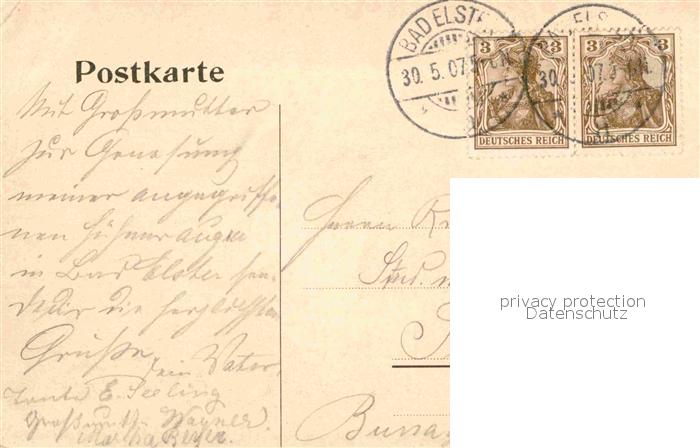 BAD ELST
30. 5. 07.
3 3
DEUTSCHES REICH
3 3
DEUTSCHES REICH
Postkarte
Mit Großmutter
zur Genesung
meiner angegriffe-
nen Hühneraugen
in Bad Elster sen-
det dir die herzlichsten
Grüße, dein Vater.
Tante E. Seeling
Großmutt. Wagner.
Martha Beyer.
Herrn
Stud.
privacy protection
Datenschutz